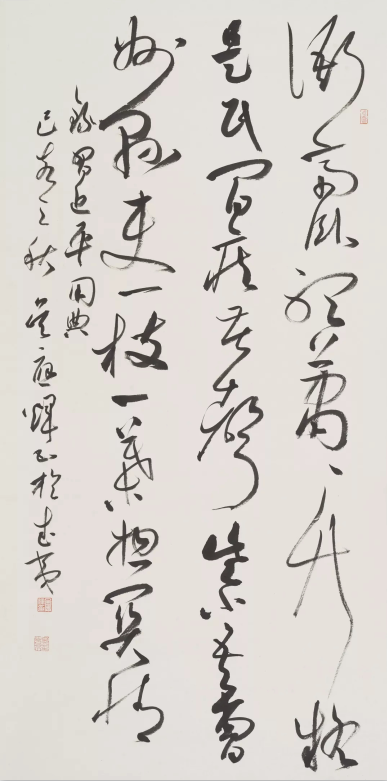 衙齋臥聽蕭蕭竹疑
是民間疾苦聲些小吾曹
州縣吏一枝一葉總關情
錄習近平用典
己亥之秋吳應輝書於武夷